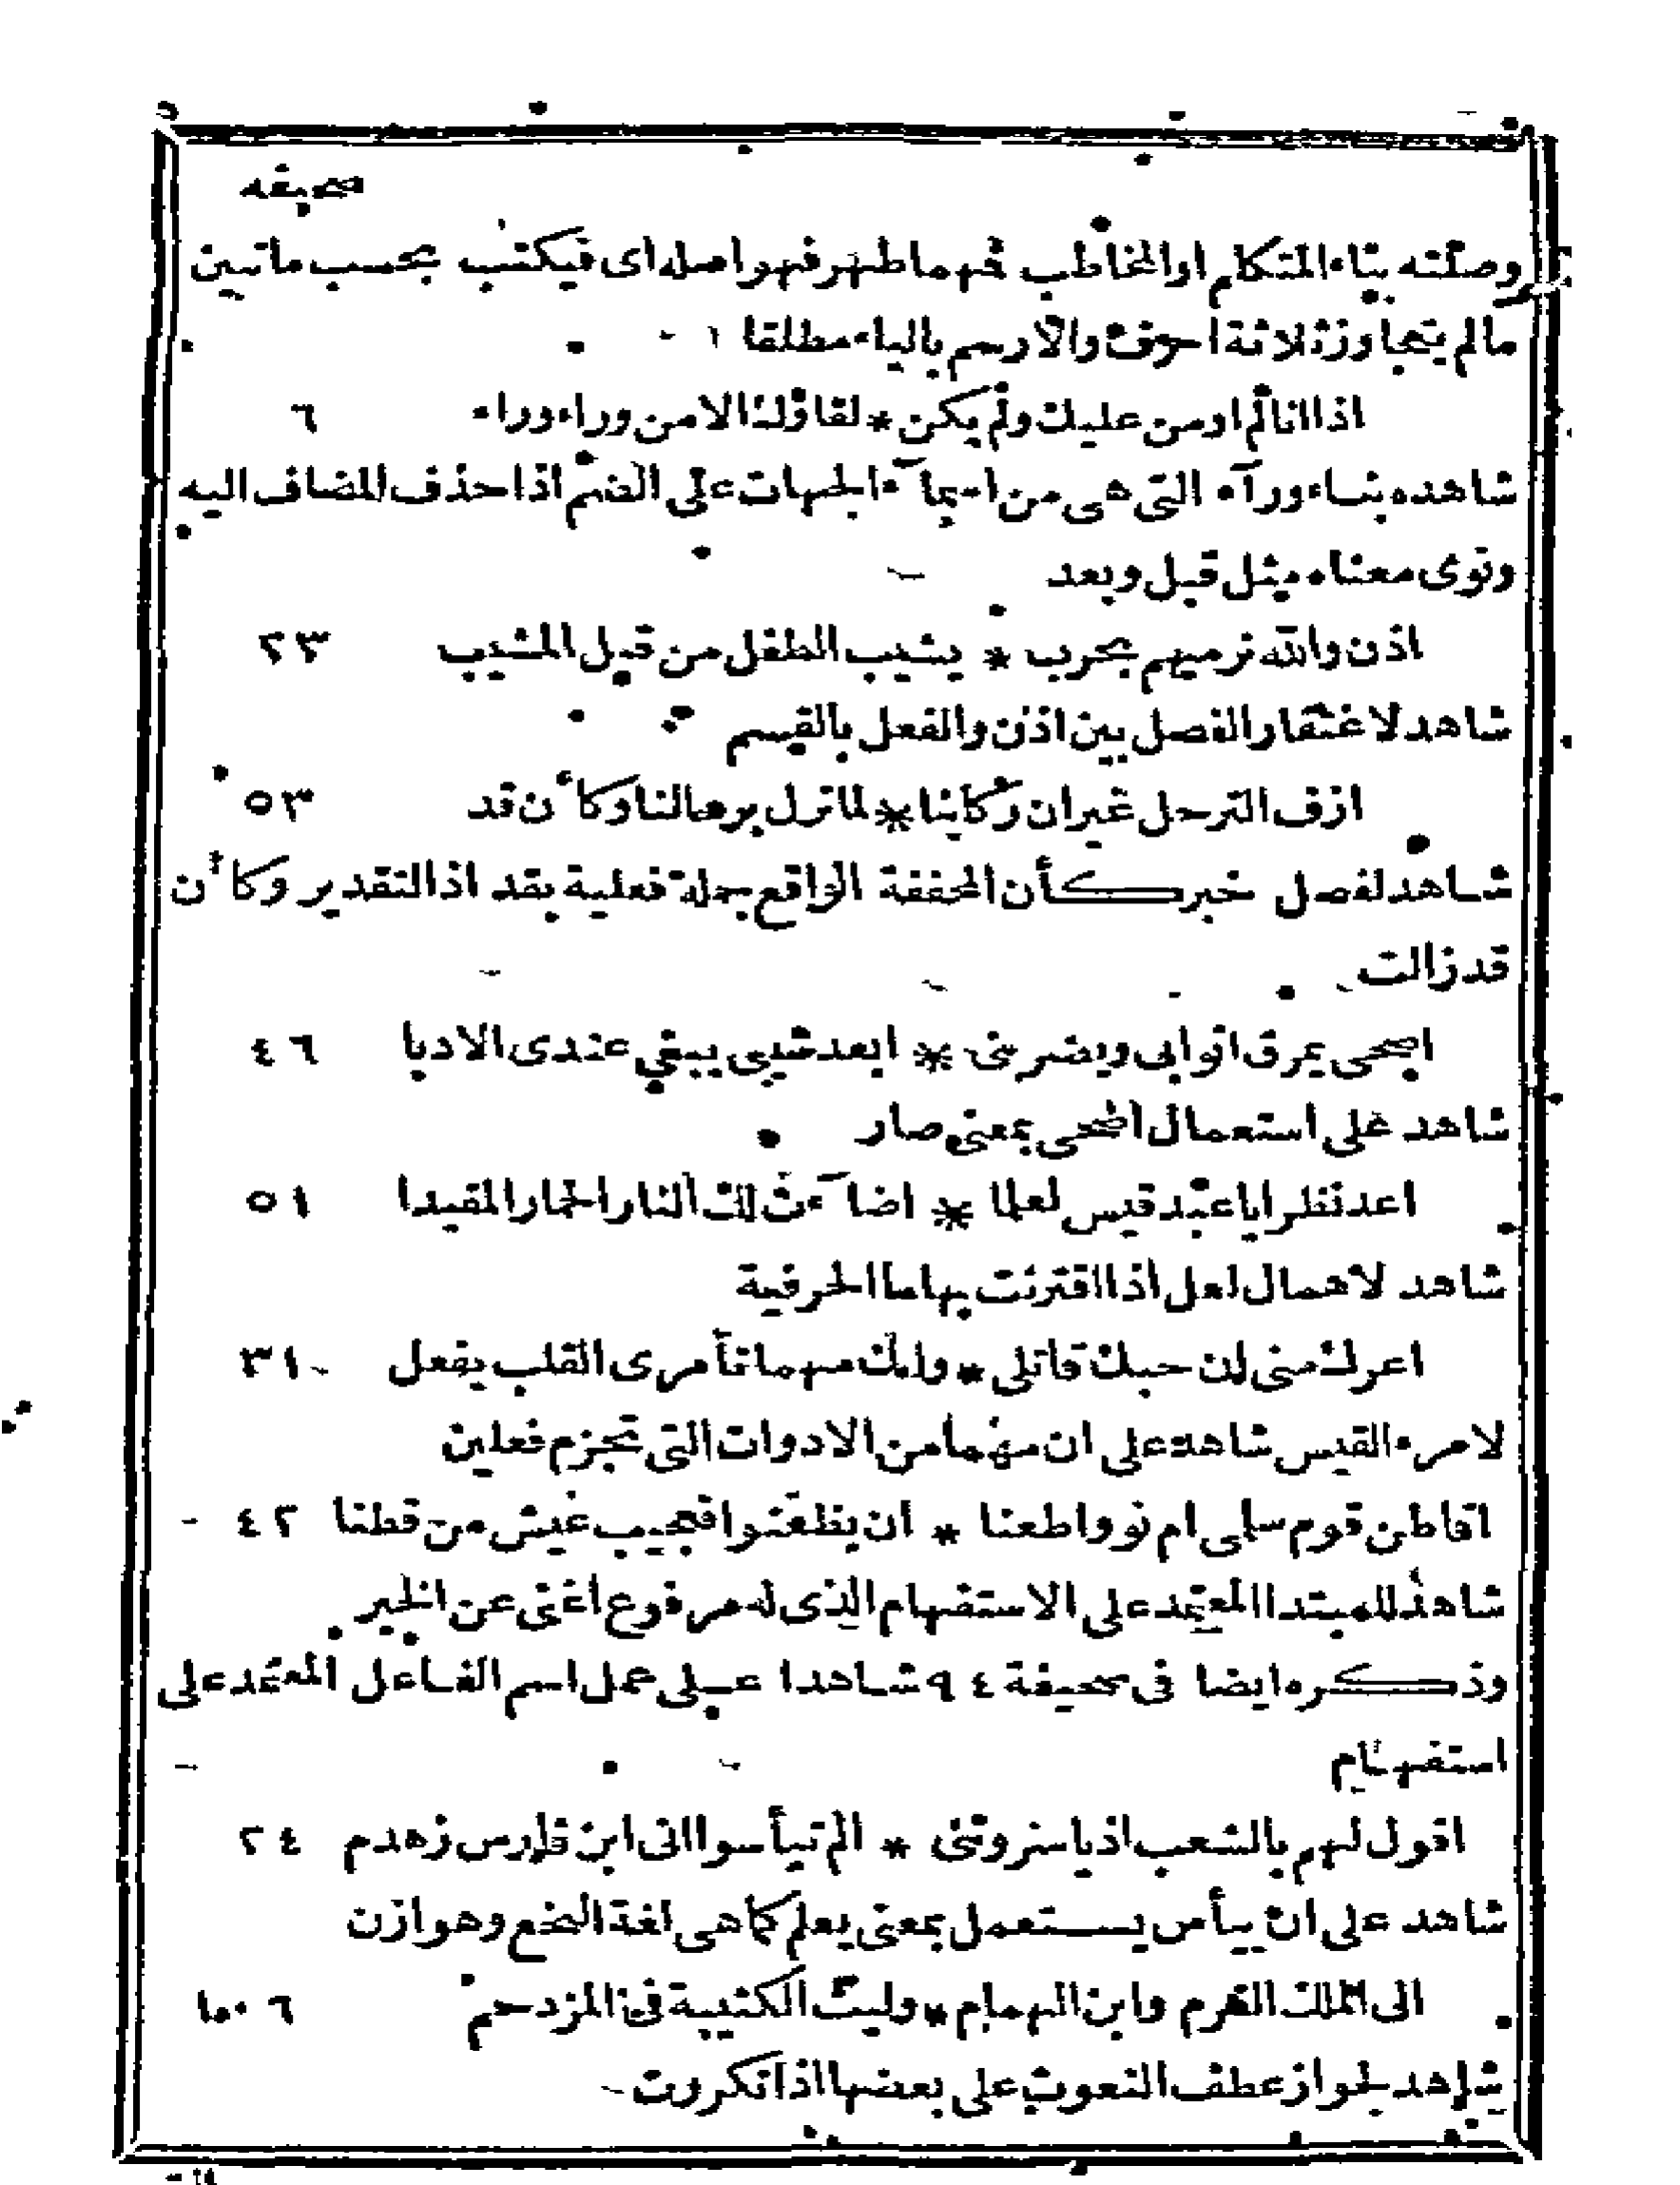 صحيفه
وصلته بتاء المتكلم او المخاطب فمهما ظهر فهو اصله اى فيكتب بحسب ماتبين
مالم يتجاوز ثلاثة احرف والا رسم بالياء مطلقا
اذا انا لم اومن عليك ولم يكن * لقاؤك الا من وراء وراء ٦
شاهده بناء ورآء التى هى من اسمآء الجهات على الضم اذا حذف المضاف اليه
ونوى معناه مثل قبل وبعد
اذن والله نرميهم بحرب * يشيب الطفل من قبل المشيب ٢٣
شاهد لاغتفار الفصل بين اذن والفعل بالقسم
ازف الترحل غير ان ركابنا * لما تزل برحالنا وكأن قد ٥٣
شاهد لفصل خبر كأن المخففة الواقع جملة فعلية بقد اذ التقدير وكأن
قد زالت
اضحى يمزق اثوابى ويضربنى * ابعد شيبى يبغي عندى الادبا ٤٦
شاهد على استعمال اضحى بمعنى صار
اعد نظرا ياعبد قيس لعلما * اضاءت لك النار الحمار المقيدا ٥١
شاهد لاهمال لعل اذا اقترنت بها ما الحرفية
اغرك منى ان حبك قاتلى * وانك مهما تأمرى القلب يفعل ٣١
لامرء القيس شاهد على ان مهما من الادوات التى تجزم فعلين
اقاطن قوم سلمى ام نووا ظعنا * ان يظعنوا فعجيب عيش من قطنا ٤٢
شاهد للمبتدا المعتمد على الاستفهام الذى له مرفوع اغنى عن الخبر
وذكره ايضا فى صحيفة ٩٤ شاهدا على عمل اسم الفاعل المعتمد على
استفهام
اقول لهم بالشعب اذ ياسروننى * الم تيأسوا انى ابن فارس زهدم ٢٤
شاهد على ان ييأس يستعمل بمعنى يعلم كما هى لغة النخع وهوازن
الى الملك القرم وابن الهمام * وليث الكتيبة فى المزدحم ١٠٦
شاهد لجواز عطف النعوت على بعضها اذا تكررت